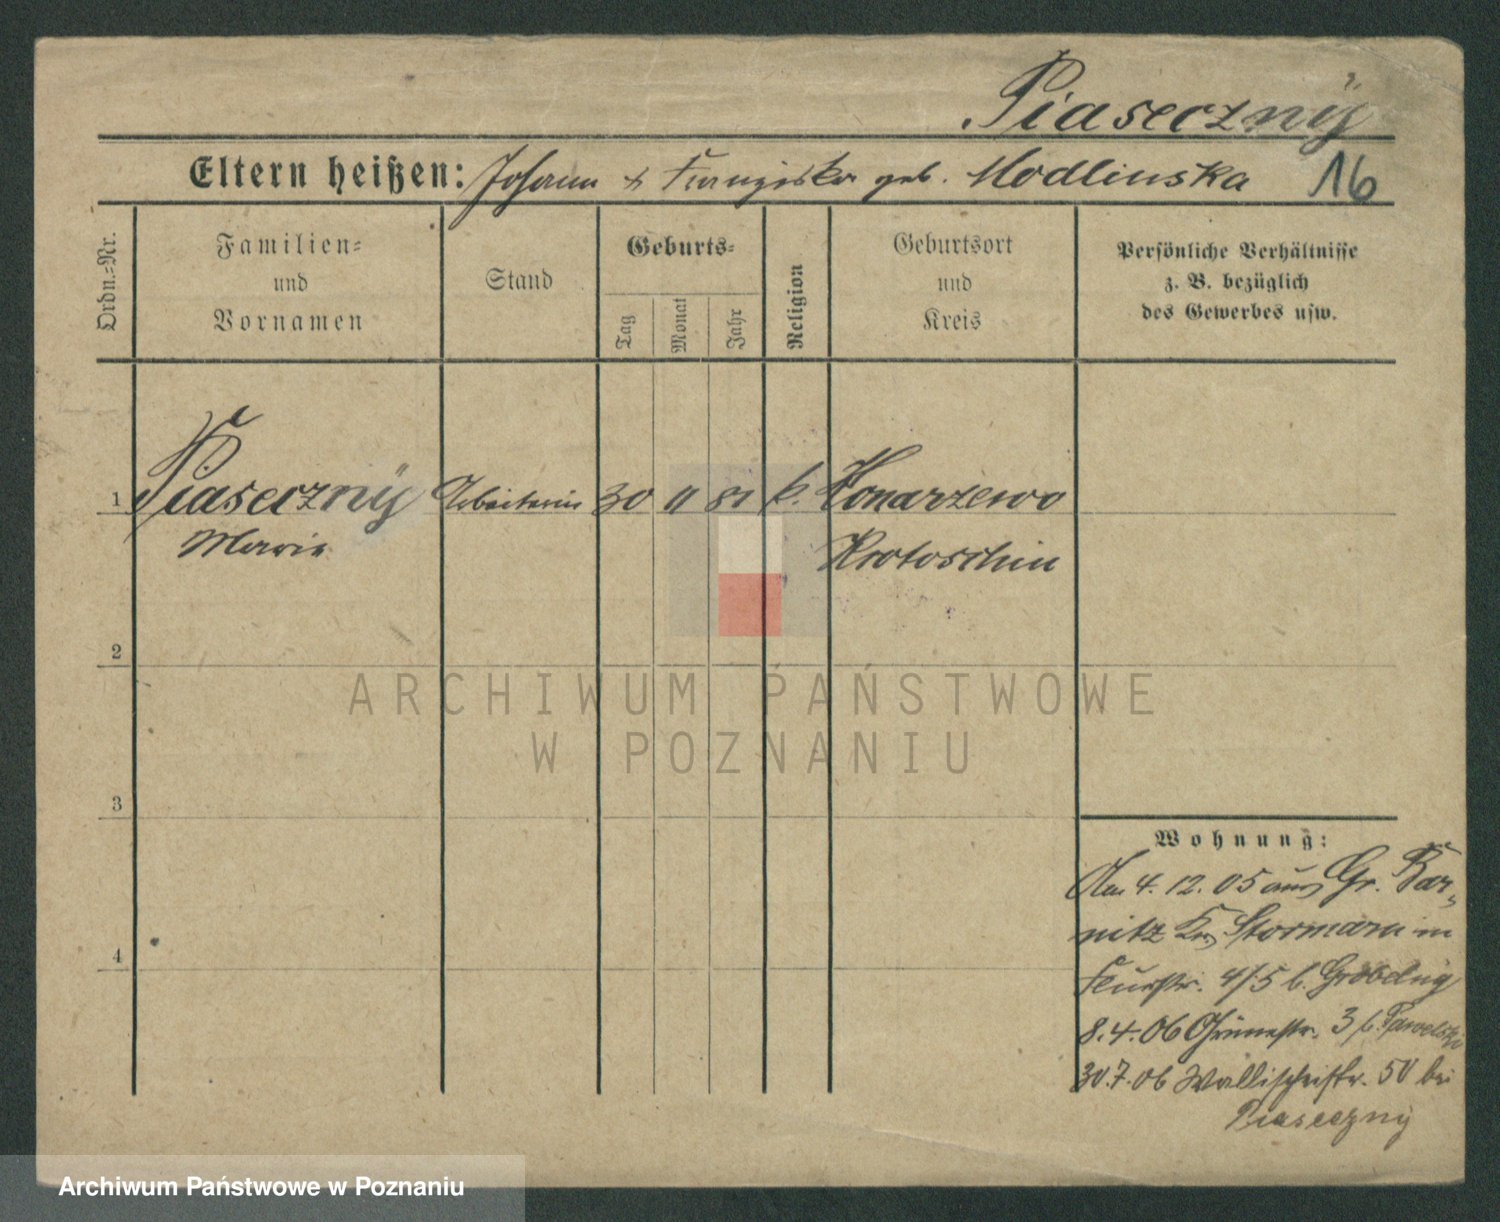 Piaseczny
Eltern heißen: Johann & Franziska geb. Modlinska 16
Ordn.-Nr.
Familien-
und
Vornamen
Stand
Geburts-
Tag
Monat
Jahr
Religion
Geburtsort
und
Kreis
Persönliche Verhältnisse
z. B. bezüglich
des Gewerbes usw.
1 Piaseczny Arbeiterin 30 11 81 k. Konarzewo
Marie Krotoschin
2
ARCHIWUM PAŃSTWOWE
W POZNANIU
3
Wohnung:
Am 4. 12. 05 aus Gr. Bar-
nitz Kr. Stormarn in
4
4/5 b.
8.4.06 Grünestr. 3 b.
30.7.06 Wallischeistr. 50 bei
Piaseczny
Archiwum Państwowe w Poznaniu